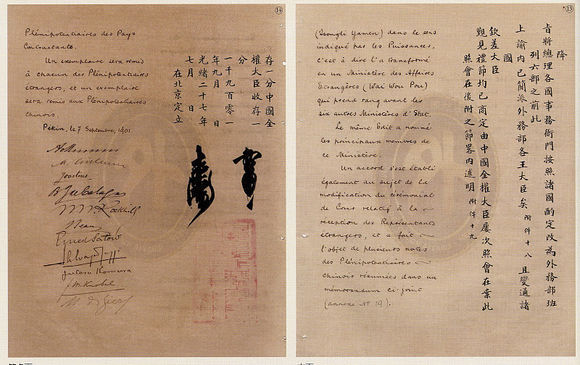 Plénipotentiaires des Pays
Contractants.
Un exemplaire sera remis
à chacun des Plénipotentiaires
étrangers, et un exemplaire
sera remis aux Plénipotentiaires
chinois.
Pékin, le 7 Septembre, 1901
Joostens
Beau
Ernest Satow
Salvago Raggi
Jutaro Komura
M. de Giers
存一分中國全
權大臣收存一
分
一千九百零一
年九月 日
光緒二十七年
七月 日
在北京定立
(Tsongli Yamen) dans le sens
indiqué par les Puissances,
c'est à dire l'a transformé
en un Ministère des Affaires
Etrangères (Wai Wou Pou)
qui prend rang avant les
six autres Ministères d'Etat.
Le même Edit a nommé
les principaux membres de
ce Ministère.
Un accord s'est établi
également au sujet de la
modification du cérémonial
de Cour relatif à la
réception des Représentants
étrangers, et a fait
l'objet de plusieurs notes
des Plénipotentiaires
chinois résumées dans un
mémorandum ci-joint
(annexe Nº 19).
降
旨將總理各國事務衙門按照諸國酌定改為外務部班
列六部之前此
上諭內已簡派外務部各王大臣矣附件十八且變通諸
國
欽差大臣
覲見禮節均已商定由中國全權大臣屢次照會在案此
照會在後附之節畧內述明附件十九